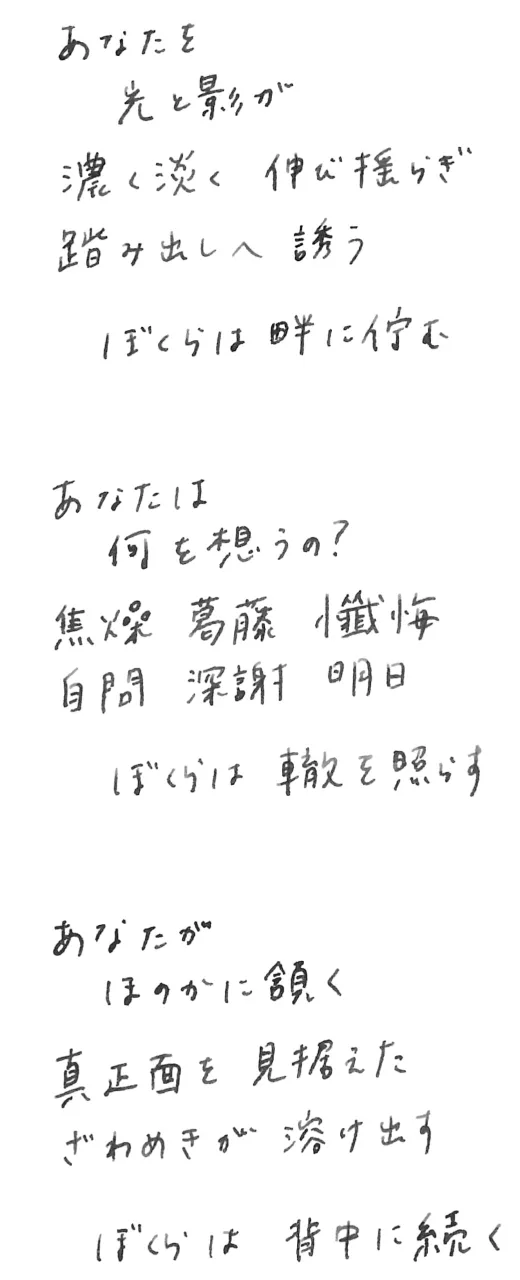 あなたを
光と影が
濃く淡く 伸び揺らぎ
踏み出しへ 誘う
ぼくらは 畔に佇む
あなたは
何を想うの?
焦燥 葛藤 懺悔
自問 深謝 明日
ぼくらは 轍を照らす
あなたが
ほのかに頷く
真正面を 見据えた
ざわめきが 溶け出す
ぼくらは 背中に続く